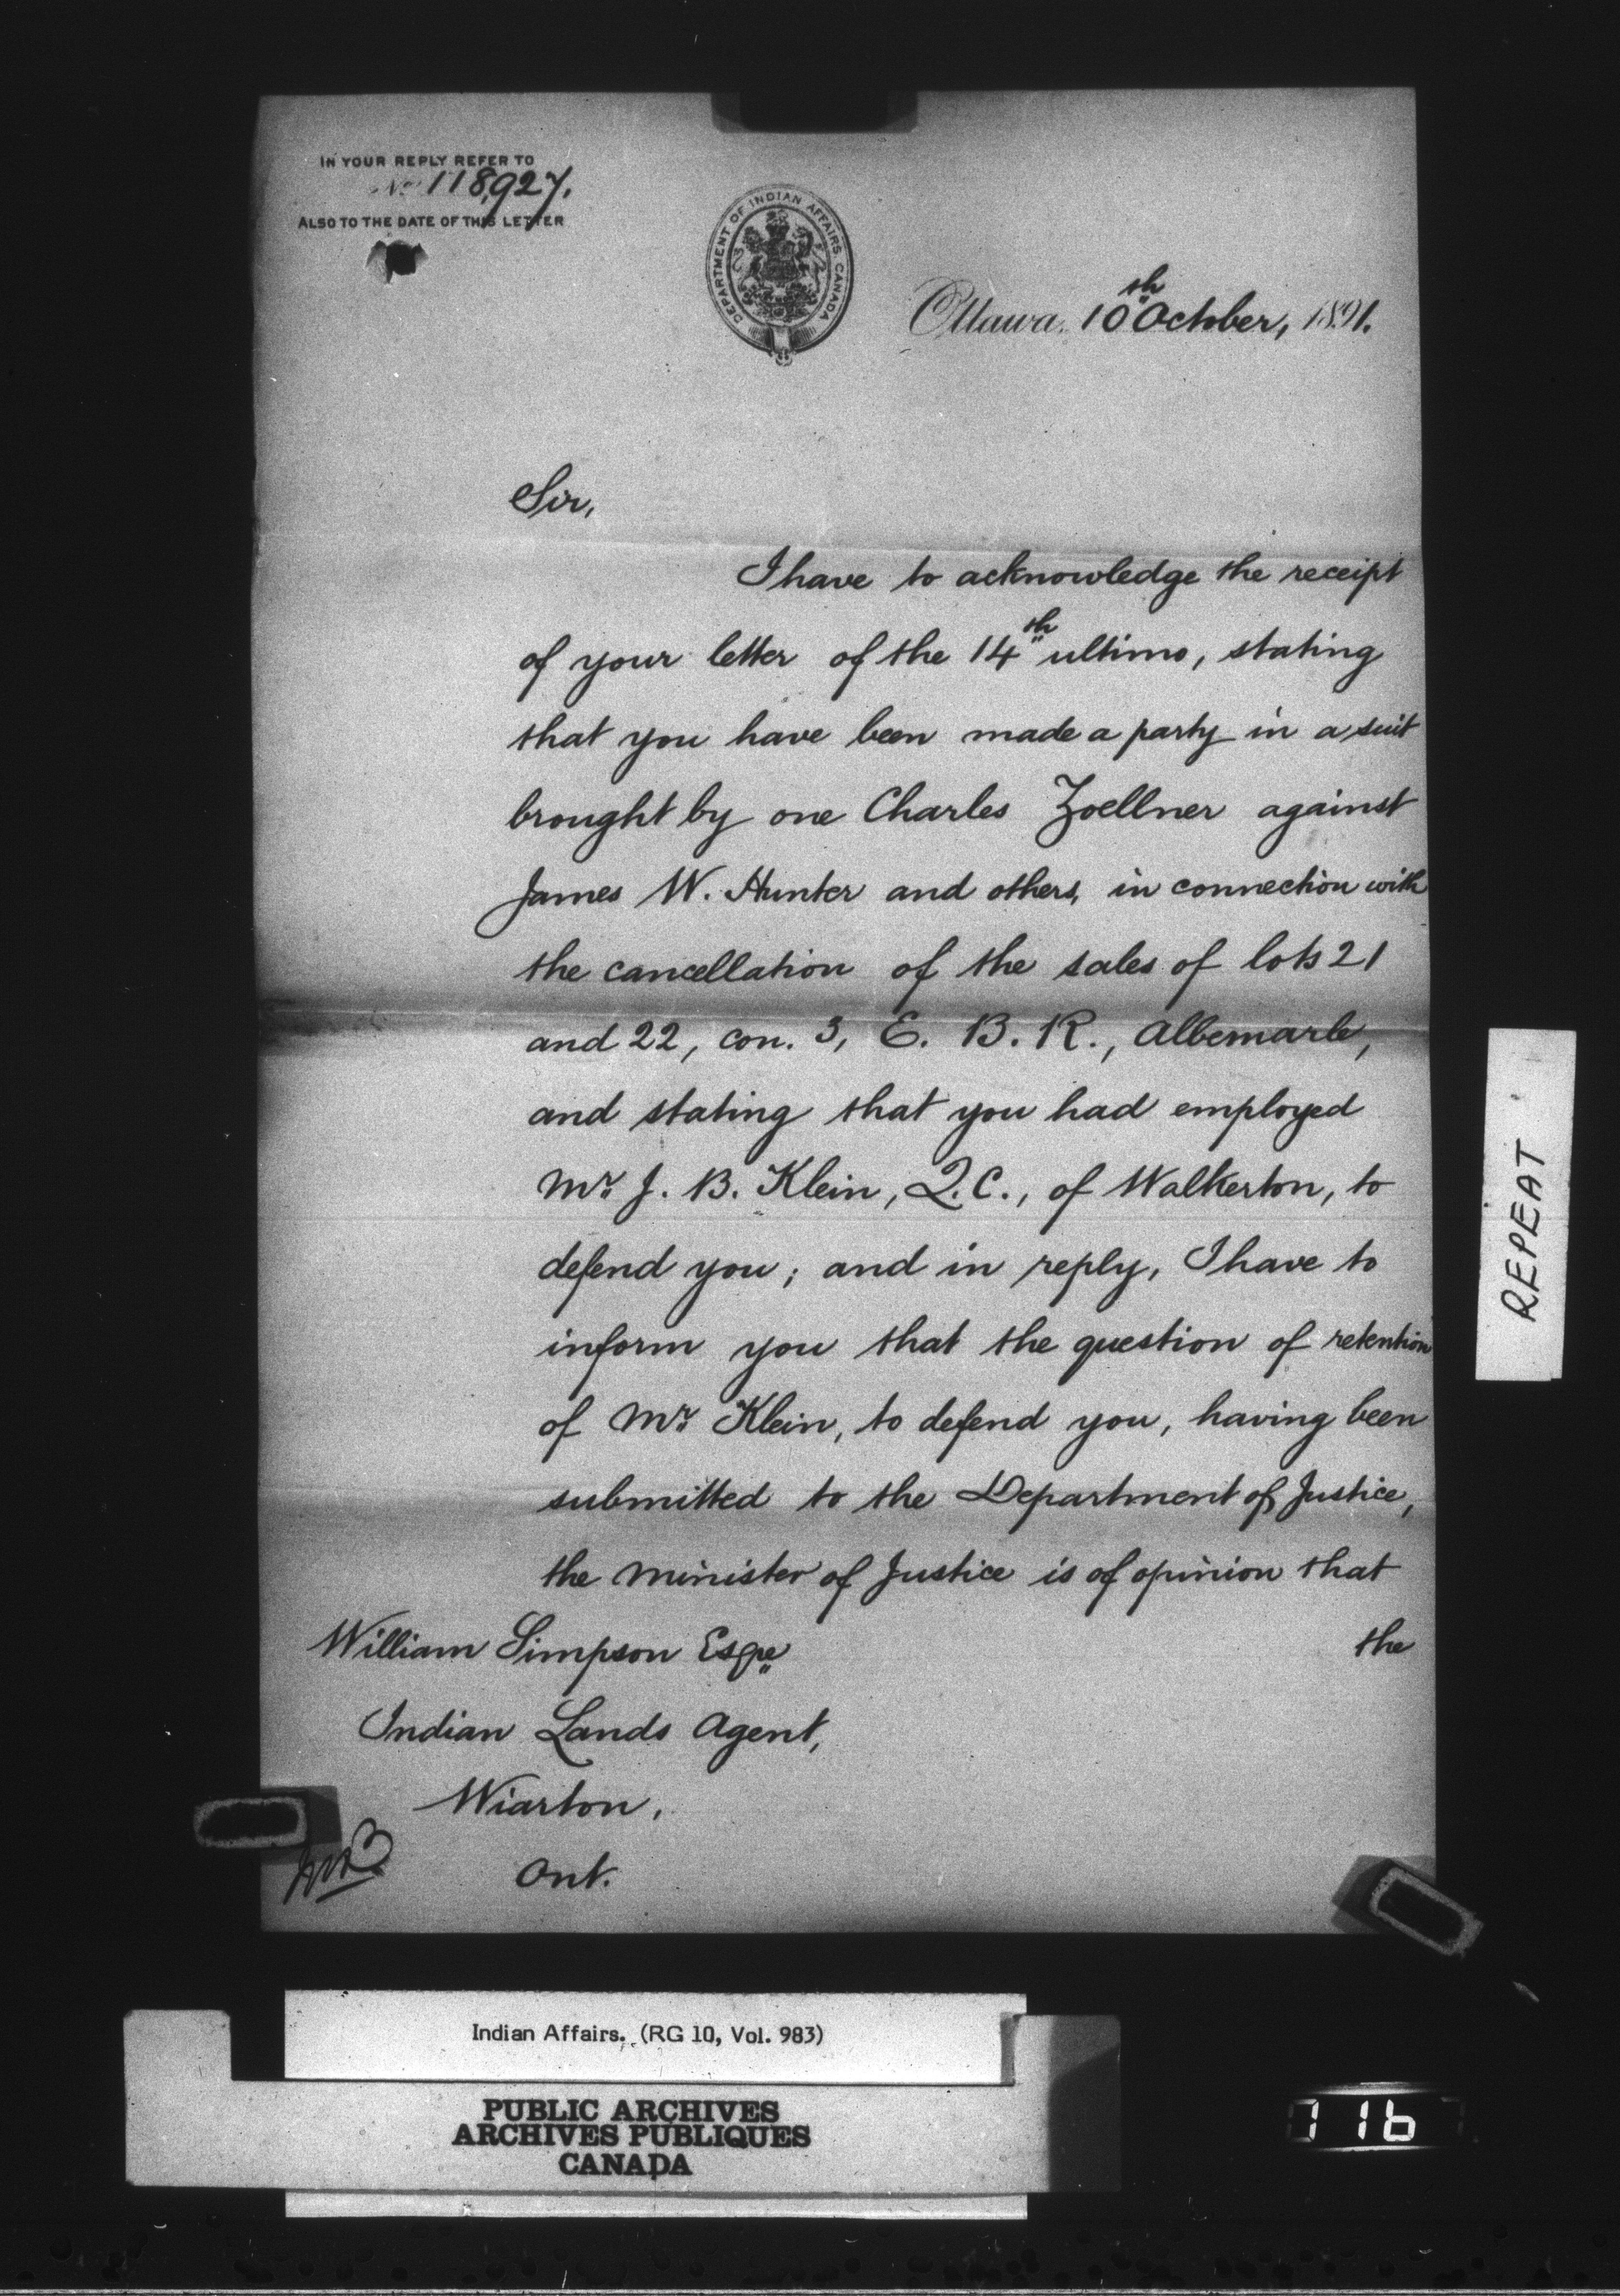 IN YOUR REPLY REFER TO
No 118,927.
ALSO TO THE DATE OF THIS LETTER
DEPARTMENT OF INDIAN AFFAIRS CANADA
Ottawa, 10th October, 1891.
Sir,
I have to acknowledge the receipt
of your letter of the 14th ultimo, stating
that you have been made a party in a suit
brought by one Charles Zoellner against
James W. Hunter and others, in connection with
the cancellation of the sales of lots 21
and 22, con. 3, E. B. R., Albemarle,
and stating that you had employed
Mr. J. B. Klein, Q.C., of Walkerton, to
defend you; and in reply, I have to
inform you that the question of retention
of Mr. Klein, to defend you, having been
submitted to the Department of Justice,
the Minister of Justice is of opinion that
the
William Simpson Esqre
Indian Lands Agent,
Wiarton,
Ont.
REPEAT
Indian Affairs. (RG 10, Vol. 983)
PUBLIC ARCHIVES
ARCHIVES PUBLIQUES
CANADA
116